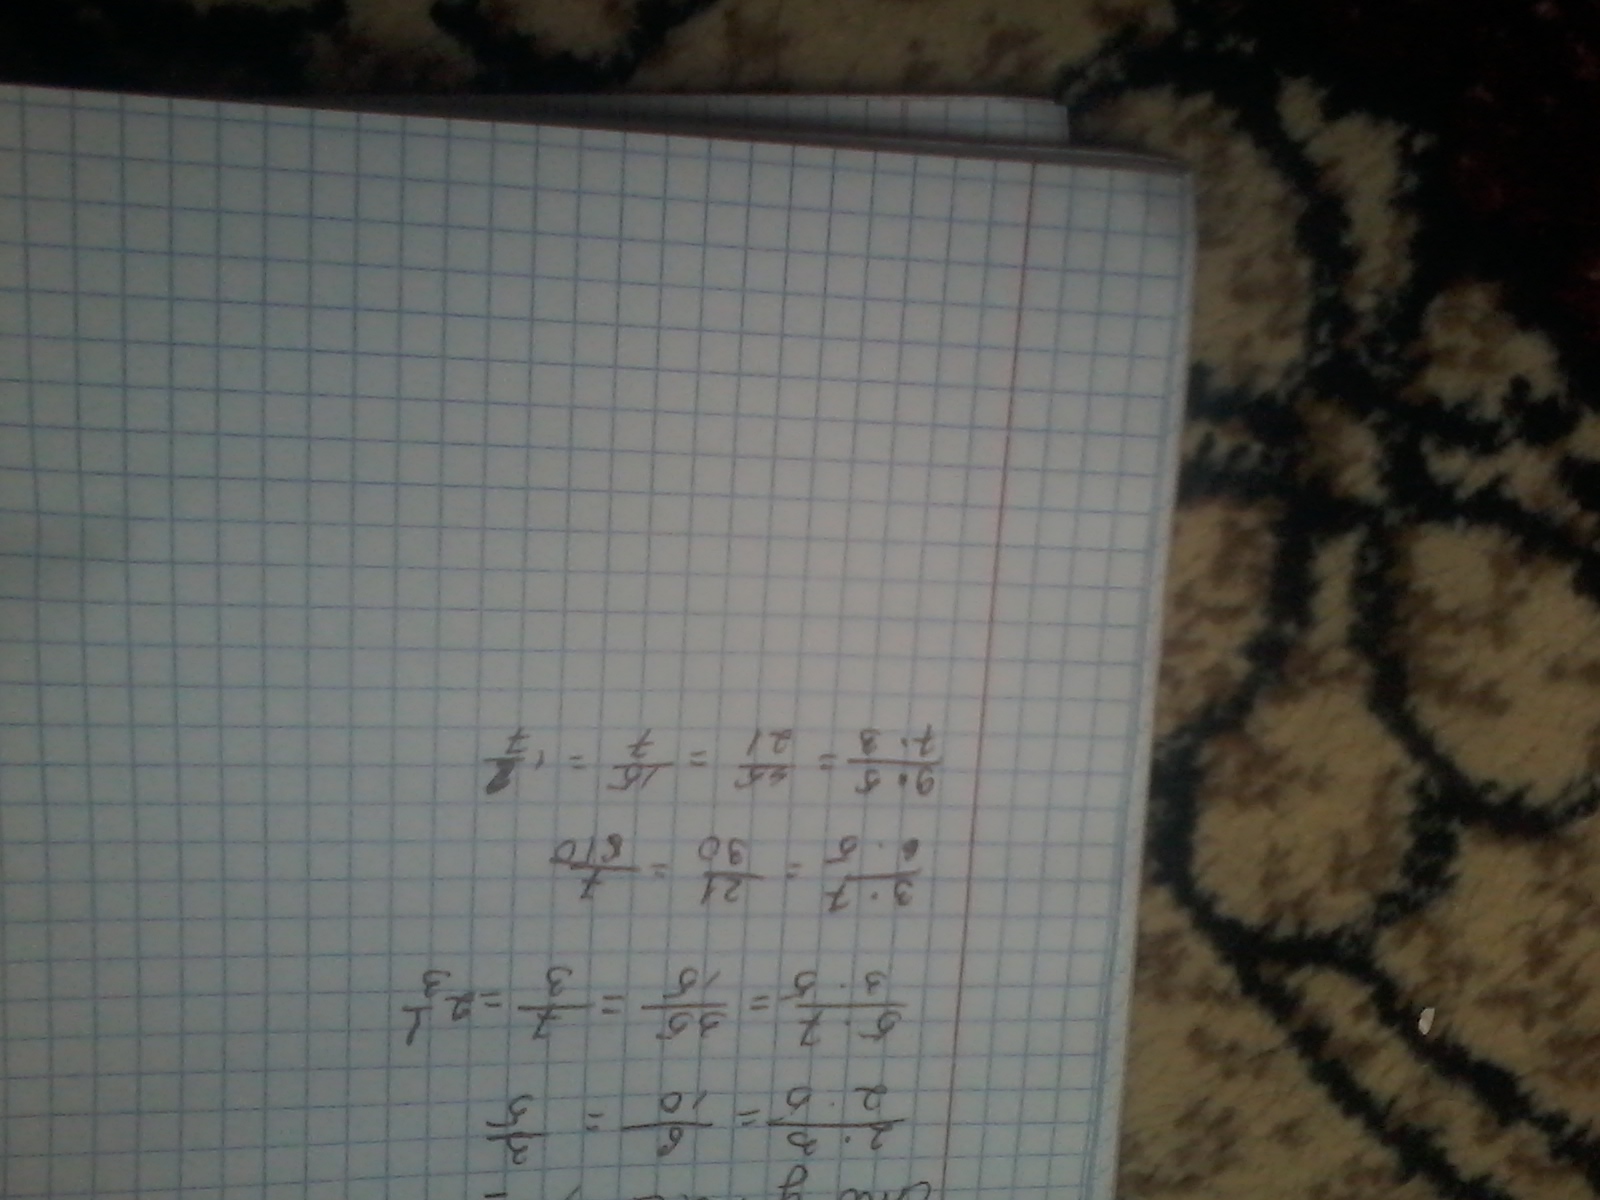 2·3/2·5 = 6/10 = 3/5
5·7/3·5 = 35/15 = 7/3 = 2 1/3
3·7/ ·5 = 21/30 = 7/10
9·5/7·3 = 45/21 = 15/7 = 1 /7